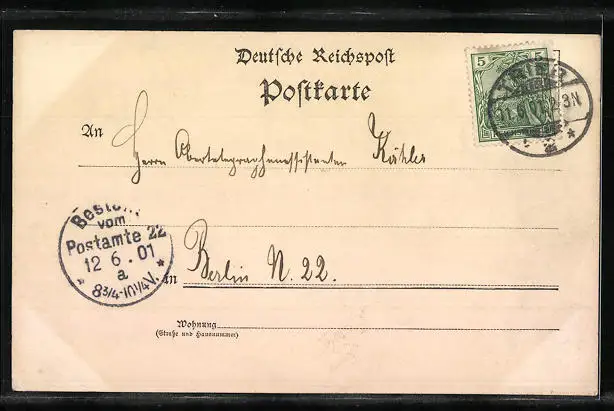 Deutsche Reichspost
Postkarte
5 5
TRIER
11.6.01.2-3N
An
Herrn Obertelegraphenassistenten Köhler
Bestellt
vom
Postamte 22
12 6 . 01
a
8 3/4-10 1/4 V.
in
Berlin N. 22.
Wohnung
(Straße und Hausnummer)